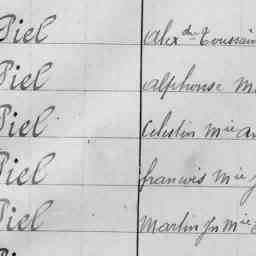 Piel Alexdre Toussain
Piel Alphonse M
Piel Celestin Mie A
Piel francois Mie J
Piel Martin Jn Mie